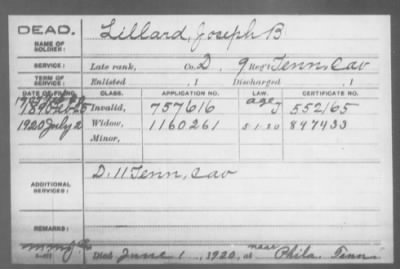 DEAD.
Lillard, Joseph B
NAME OF SOLDIER:
SERVICE: Late rank, Co. D, 9 Reg't Tenn. Cav
TERM OF SERVICE: Enlisted , 1 Discharged , 1
DATE OF FILING. CLASS. APPLICATION NO. LAW. CERTIFICATE NO.
Invalid, 757616 age J 552165
1920 July 2 Widow, 1160261 5-1-20 897433
Minor,
ADDITIONAL SERVICES: D. 11 Tenn, Cav
REMARKS:
Died June 1, 1920, at near Phila. Tenn